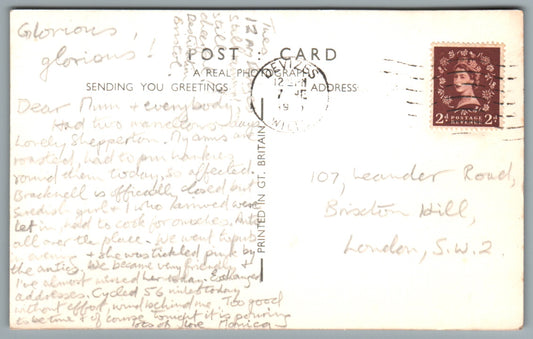 Glorious,
glorious!
Tues.
POST CARD
A REAL PHOTOGRAPH
SENDING YOU GREETINGS
ADDRESS
DEVIZES
WILTS
2d POSTAGE REVENUE 2d
PRINTED IN GT. BRITAIN
Dear Mum + everybody,
Had two marvellous days.
Lovely Shepperton. My arms are
roasted, had to pin hankies
round them today, so affected.
Bracknell is officially closed but
Swedish girl + I who arrived were
let in, had to cook for ourselves. Ants
all over the place. We went to pub
in evening + she was tickled pink by
the antics. We became very friendly +
I've almost missed her today. Exchanged
addresses. Cycled 56 miles today
without effort, wind behind me. Too good
to be true + of course tonight it is pouring
lots of love Monica
107, Leander Road,
Brixton Hill,
London, S.W.2.